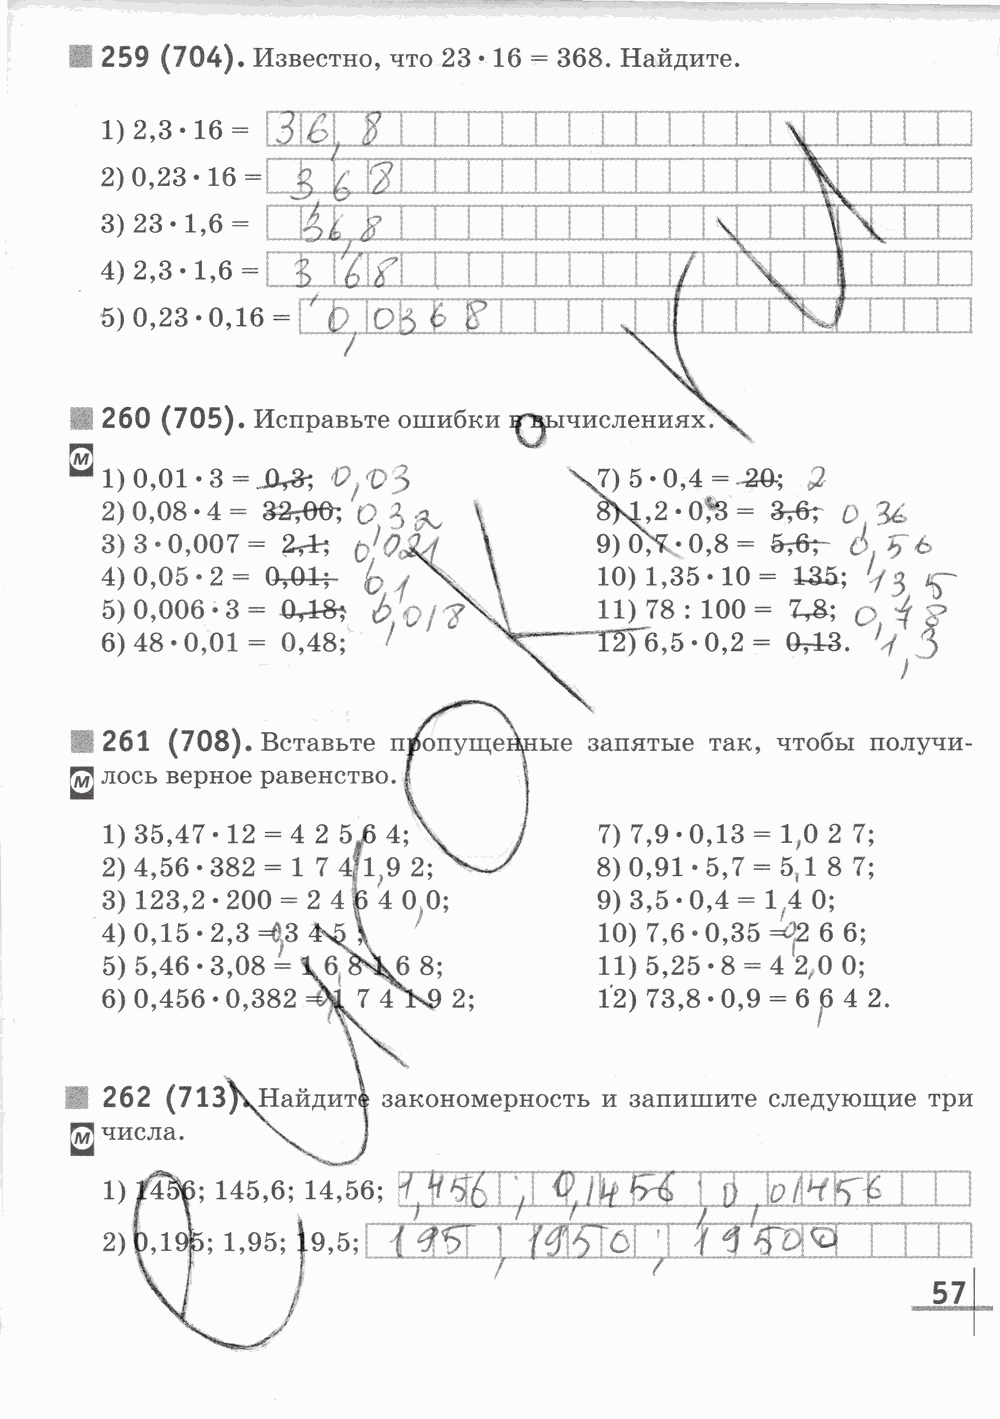 259 (704). Известно, что 23 · 16 = 368. Найдите.
1) 2,3 · 16 = 36,8
2) 0,23 · 16 = 3,68
3) 23 · 1,6 = 36,8
4) 2,3 · 1,6 = 3,68
5) 0,23 · 0,16 = 0,0368
260 (705). Исправьте ошибки в вычислениях.
М
1) 0,01 · 3 = 0,3; 0,03
2) 0,08 · 4 = 32,00; 0,32
3) 3 · 0,007 = 2,1; 0,021
4) 0,05 · 2 = 0,01; 0,1
5) 0,006 · 3 = 0,18; 0,018
6) 48 · 0,01 = 0,48;
7) 5 · 0,4 = 20; 2
8) 1,2 · 0,3 = 3,6; 0,36
9) 0,7 · 0,8 = 5,6; 0,56
10) 1,35 · 10 = 135; 13,5
11) 78 : 100 = 7,8; 0,78
12) 6,5 · 0,2 = 0,13. 1,3
261 (708). Вставьте пропущенные запятые так, чтобы получи-
М лось верное равенство.
1) 35,47 · 12 = 4 2 5,6 4;
2) 4,56 · 382 = 1 7 4 1,9 2;
3) 123,2 · 200 = 2 4 6 4 0,0;
4) 0,15 · 2,3 = 0,3 4 5 ;
5) 5,46 · 3,08 = 1 6,8 1 6 8;
6) 0,456 · 0,382 = 0,1 7 4 1 9 2;
7) 7,9 · 0,13 = 1,0 2 7;
8) 0,91 · 5,7 = 5,1 8 7;
9) 3,5 · 0,4 = 1,4 0;
10) 7,6 · 0,35 = 0,2 6 6;
11) 5,25 · 8 = 4 2,0 0;
12) 73,8 · 0,9 = 6 6,4 2.
262 (713). Найдите закономерность и запишите следующие три
М числа.
1) 1456; 145,6; 14,56; 1,456 ; 0,1456 ; 0,01456
2) 0,195; 1,95; 19,5; 195 ; 1950 ; 19500
57